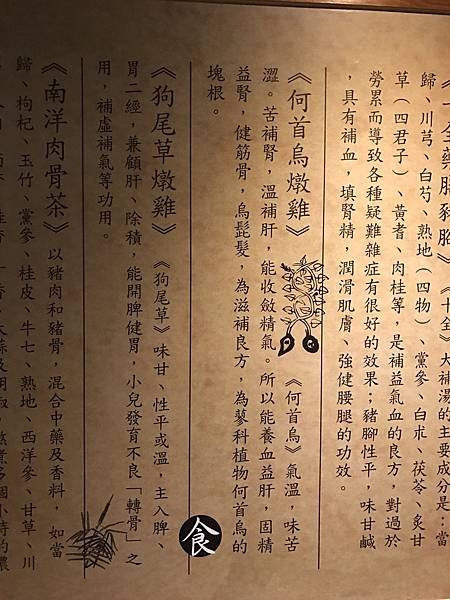 《十全藥膳豬腳》《十全》大補湯的主要成分是：當
歸、川芎、白芍、熟地（四物）、黨參、白朮、茯苓、炙甘
草（四君子）、黃耆、肉桂等，是補益氣血的良方，對過於
勞累而導致各種疑難雜症有很好的效果；豬腳性平，味甘鹹
，具有補血，填腎精，潤滑肌膚、強健腰腿的功效。
《何首烏燉雞》《何首烏》氣溫，味苦
澀。苦補腎，溫補肝，能收斂精氣。所以能養血益肝，固精
益腎，健筋骨，烏髭髮，為滋補良方，為蓼科植物何首烏的
塊根。
《狗尾草燉雞》《狗尾草》味甘、性平或溫，主入脾、
胃二經，兼顧肝、除積，能開脾健胃，小兒發育不良「轉骨」之
用，補虛補氣等功用。
《南洋肉骨茶》以豬肉和豬骨，混合中藥及香料，如當
歸、枸杞、玉竹、黨參、桂皮、牛七、熟地、西洋參、甘草、川
食